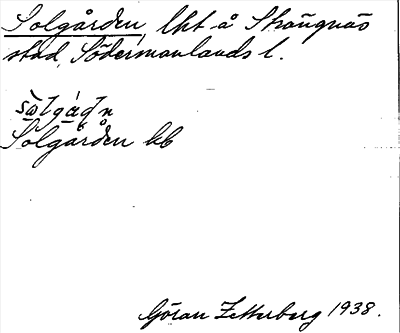 Solgården, lht å Strängnäs
stad, Södermanlands l.
Solgården kb
Göran Zetterberg 1938.